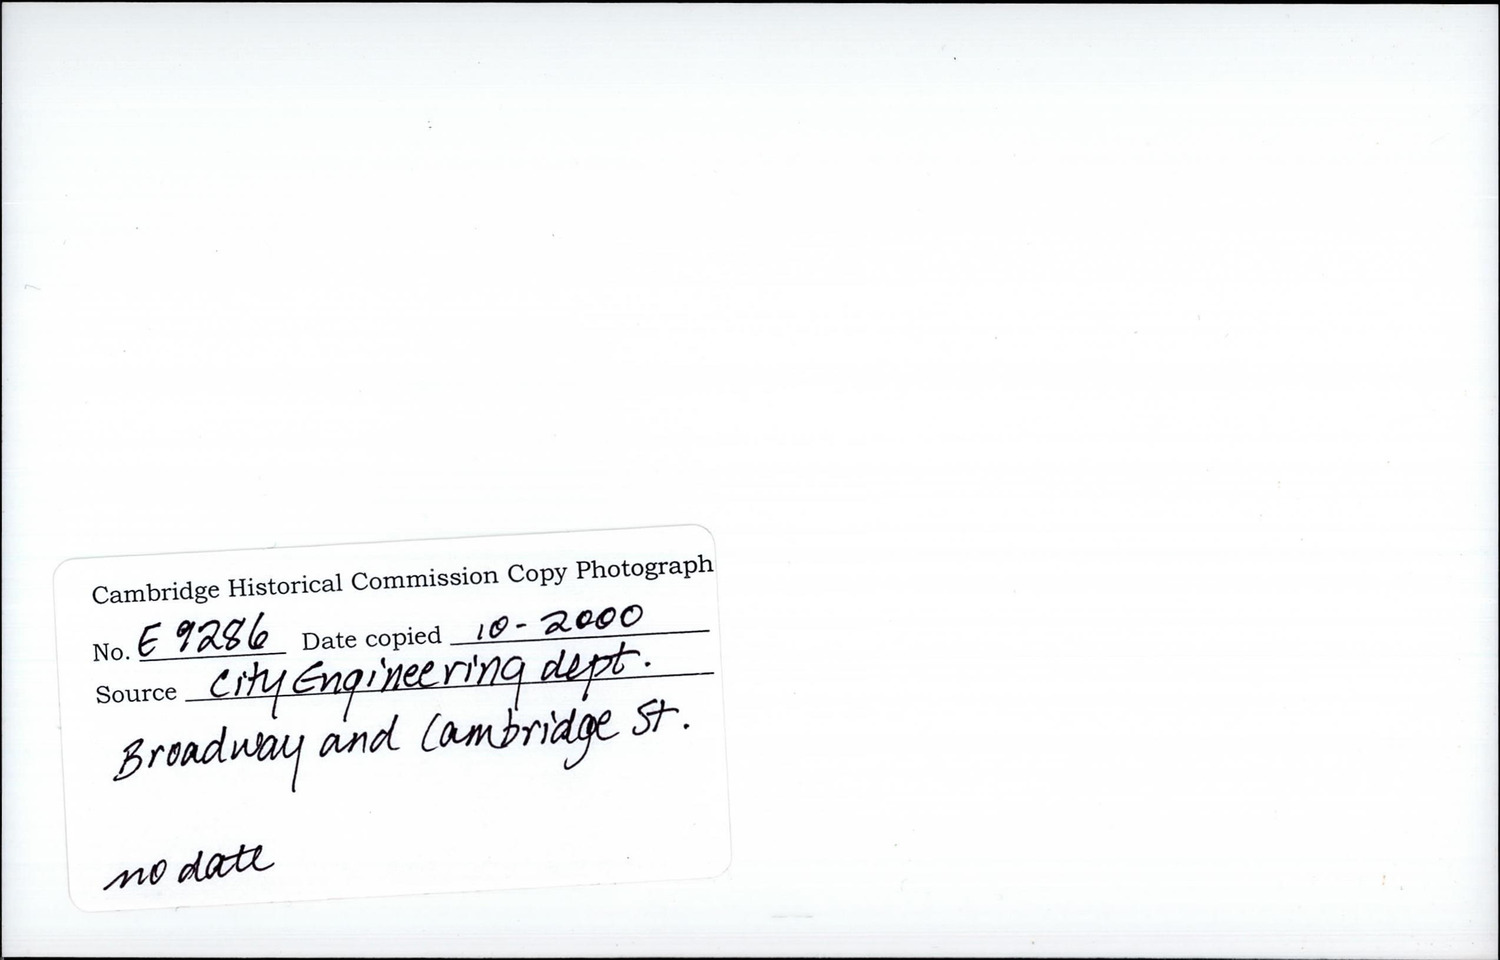 Cambridge Historical Commission Copy Photograph
No. E 9286 Date copied 10-2000
Source City Engineering dept.
Broadway and Cambridge St.
no date